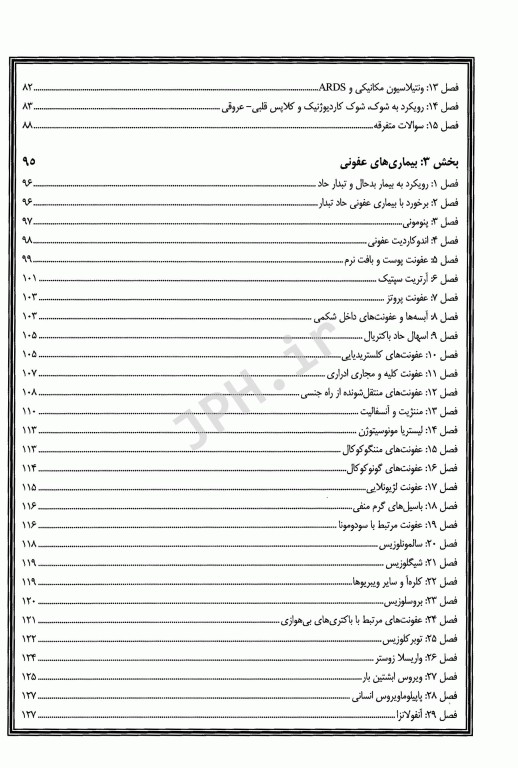 فصل ۱۳: ونتیلاسیون مکانیکی و ARDS ۸۲
فصل ۱۴: رویکرد به شوک، شوک کاردیوژنیک و کلاپس قلبی- عروقی ۸۳
فصل ۱۵: سوالات متفرقه ۸۸
بخش ۳: بیماری‌های عفونی ۹۵
فصل ۱: رویکرد به بیمار بدحال و تبدار حاد ۹۶
فصل ۲: برخورد با بیماری عفونی حاد تبدار ۹۶
فصل ۳: پنومونی ۹۷
فصل ۴: اندوکاردیت عفونی ۹۸
فصل ۵: عفونت پوست و بافت نرم ۹۹
فصل ۶: آرتریت سپتیک ۱۰۱
فصل ۷: عفونت پروتز ۱۰۳
فصل ۸: آبسه‌ها و عفونت‌های داخل شکمی ۱۰۳
فصل ۹: اسهال حاد باکتریال ۱۰۵
فصل ۱۰: عفونت‌های کلستریدیایی ۱۰۵
فصل ۱۱: عفونت کلیه و مجاری ادراری ۱۰۷
فصل ۱۲: عفونت‌های منتقل‌شونده از راه جنسی ۱۰۸
فصل ۱۳: مننژیت و آنسفالیت ۱۱۰
فصل ۱۴: لیستریا مونوسیتوژن ۱۱۳
فصل ۱۵: عفونت‌های مننگوکوکال ۱۱۳
فصل ۱۶: عفونت‌های گونوکوکال ۱۱۴
فصل ۱۷: عفونت لژیونلایی ۱۱۵
فصل ۱۸: باسیل‌های گرم منفی ۱۱۶
فصل ۱۹: عفونت مرتبط با سودومونا ۱۱۶
فصل ۲۰: سالمونلوزیس ۱۱۸
فصل ۲۱: شیگلوزیس ۱۱۹
فصل ۲۲: کلره‌آ و سایر ویبریوها ۱۱۹
فصل ۲۳: بروسلوزیس ۱۲۰
فصل ۲۴: عفونت‌های مرتبط با باکتری‌های بی‌هوازی ۱۲۱
فصل ۲۵: توبرکلوزیس ۱۲۲
فصل ۲۶: واریسلا زوستر ۱۲۴
فصل ۲۷: ویروس اپشتین بار ۱۲۵
فصل ۲۸: پاپیلوماویروس انسانی ۱۲۷
فصل ۲۹: آنفولانزا ۱۲۷
JPH.ir